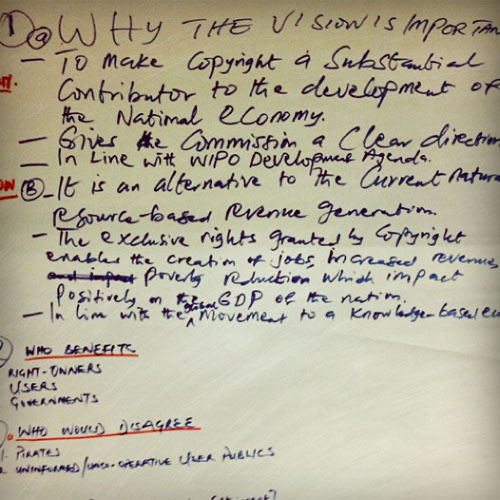 1 a WHY THE VISION IS IMPORTAN
— To make Copyright a Substantial
Contributor to the development of
the National economy.
— Gives the Commission a Clear direction
— In Line with WIPO Development Agenda.
B — It is an alternative to the Current Natural
resource-based revenue generation.
— The exclusive rights granted by Copyright
enables the creation of jobs, Increased revenue,
and impact Poverty reduction which impact
Positively on the GDP of the nation.
— In line with the global Movement to a Knowledge-based e
WHO BENEFITS
RIGHT-OWNERS
USERS
GOVERNMENTS
. WHO WOULD DISAGREE
1. PIRATES
UNINFORMED/UNCO-OPERATIVE USER PUBLICS